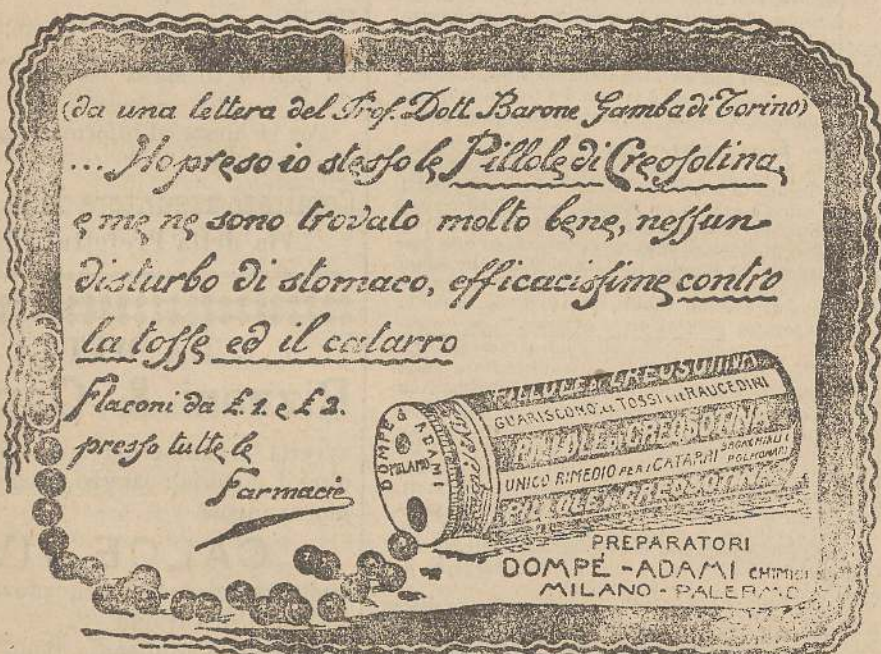 (da una lettera del Prof. Dott. Barone Gamba di Torino)
... Ho preso io stesso le Pillole di Creosotina,
e me ne sono trovato molto bene, nessun
disturbo di stomaco, efficacissime contro
la tosse ed il catarro
Flaconi da £.1. e £2.
presso tutte le
Farmacie
DOMPÉ ADAMI
MILANO
PILLOLE DI CREOSOTINA
GUARISCONO LE TOSSI E LE RAUCEDINI
PILLOLE DI CREOSOTINA
UNICO RIMEDIO PER I CATARRI BRONCHIALI E POLMONARI
PILLOLE DI CREOSOTINA
PREPARATORI
DOMPÉ - ADAMI CHIMICI
MILANO - PALERMO